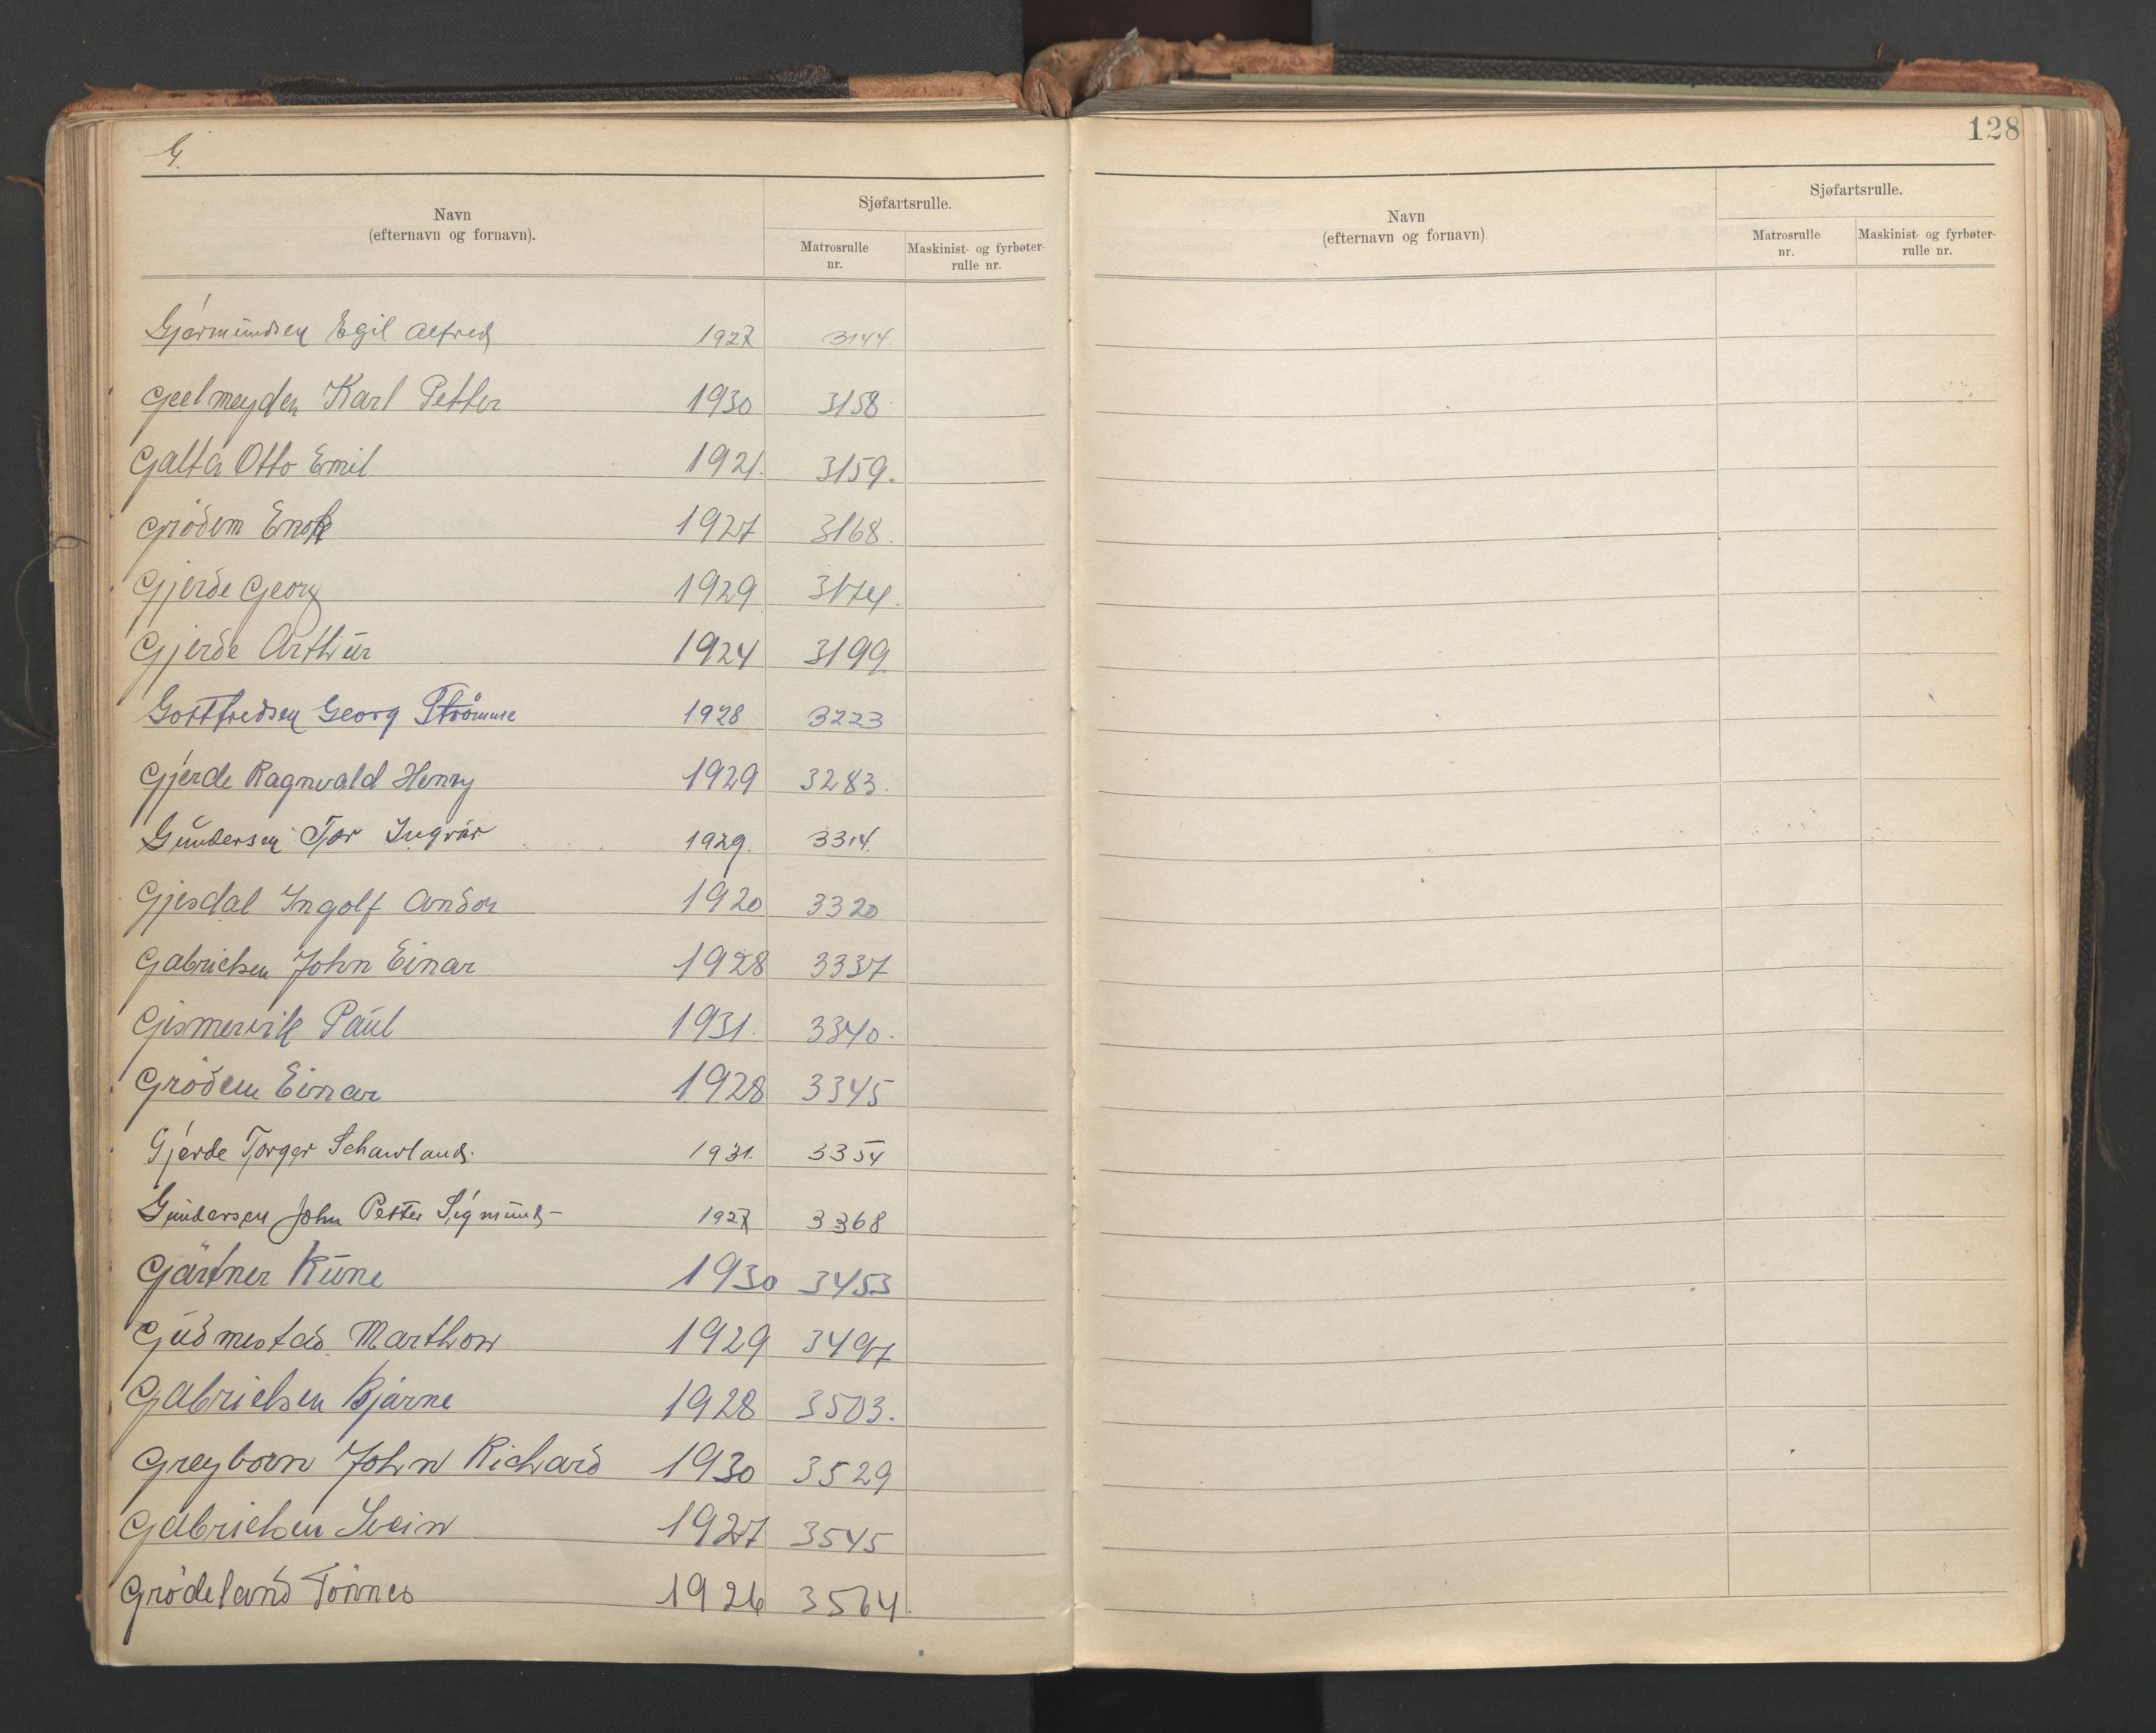 G.
Navn
(efternavn og fornavn).
Sjøfartsrulle.
Matrosrulle
nr.
Maskinist- og fyrbøter-
rulle nr.
Gjermundsen Egil Alfred 1927 3144.
Geelmeyden Karl Petter 1930 3158
Galta Otto Emil 1921. 3159.
Grödem Enok 1927 3168.
Gjerde Georg 1929 3174.
Gjerde Arthur 1924 3199.
Gottfredsen Georg Strømme 1928 3223
Gjerde Ragnvald Henry 1929 3283.
Gundersen Tor Ingvar 1929. 3314.
Gjesdal Ingolf Andor 1920 3320
Gabrielsen John Einar 1928 3337
Gismervik Paul 1931. 3340.
Grödem Einar 1928 3345
Gjerde Torger Schawland. 1931. 3354
Gundersen John Petter Sigmund- 1927 3368
Gärtner Rune 1930 3453
Gudmestad Marthon 1929 3497
Gabrielsen Bjarne 1928 3503.
Greyborn John Richard 1930 3529
Gabrielsen Svein 1927 3545
Grödeland Tönnes 1926 3564.
128
Navn
(efternavn og fornavn)
Sjøfartsrulle.
Matrosrulle
nr.
Maskinist- og fyrbøter-
rulle nr.